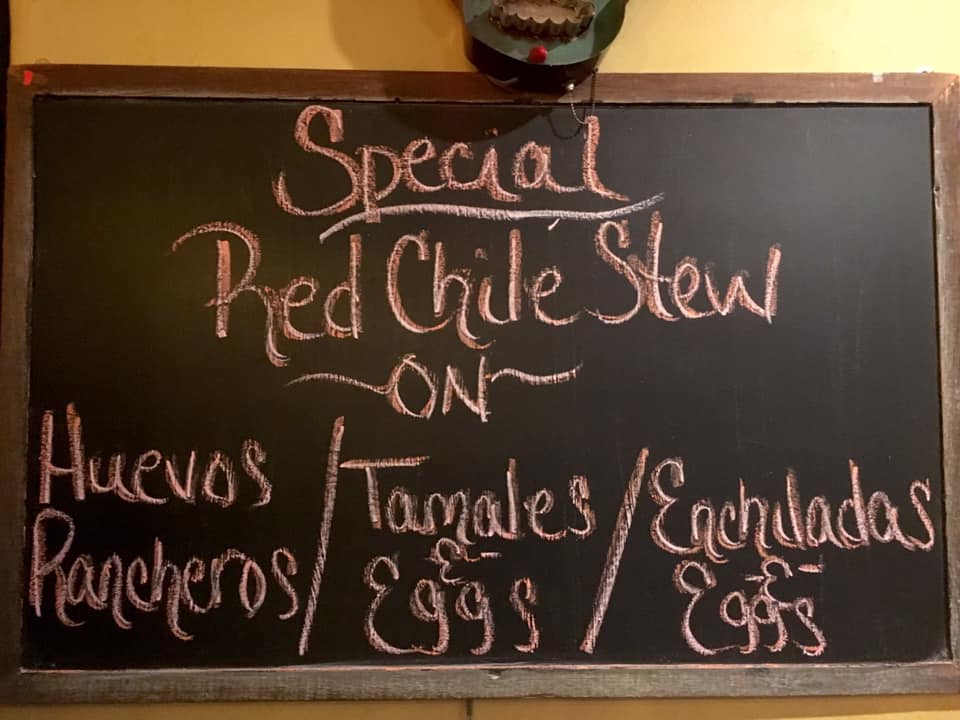 Special
Red Chile Stew
~ON~
Huevos Rancheros / Tamales & Eggs / Enchiladas & Eggs